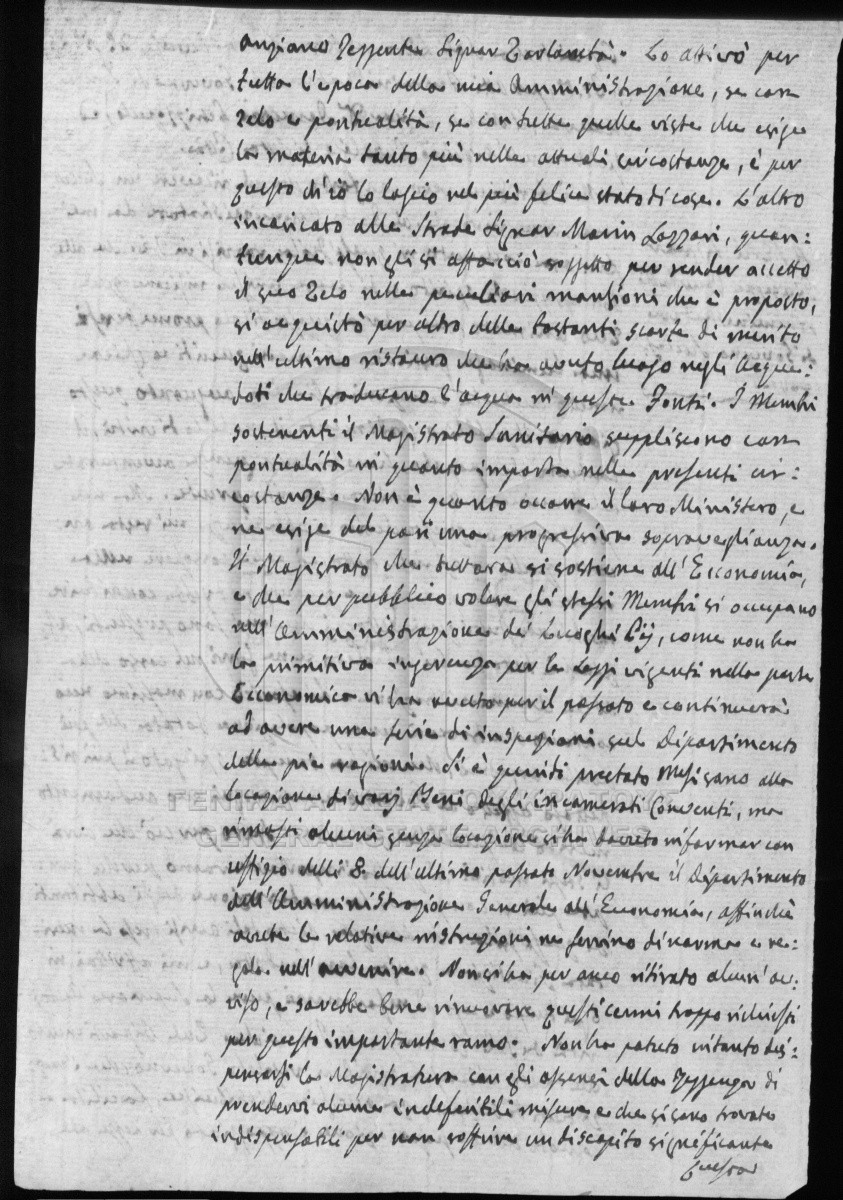 anziano Reggente Signor Zorlanità. Lo attivò per
tutta l'epoca della mia Amministrazione, se con
Zelo e pontualità, se con tutte quelle viste che esige
la materia tanto più nelle attuali circostanze, è per
questo di ciò lo lascio nel più felice stato di cose. L'altro
incaricato alle Strade Signor Marin Lazzari, quan:
tunque non gli si affacciò soggetto per render accetto
il suo Zelo nelle peculiari mansioni che è proposto,
si acquistò per altro delle bastanti scorte di merito
nell'ultimo ristauro che ha avuto luogo negli Acque:
doti che traducano l'acqua in queste Fonti. I Membri
sostenenti il Magistrato Sanitario suppliscono con
pontualità in quanto importa nelle presenti cir:
costanze. Non è quanto occorre il loro Ministero, e
ne esige del pari una progressiva sopraveglianza.
Il Magistrato che tuttora si sostiene all'Economia,
e che per pubblico volere gli stessi Membri si occupano
nell'Amministrazione de' Luoghi Pij, come non ha
la primitiva ingerenza per le Leggi vigenti nella parte
Economica vi ha avuto per il passato e continuerà
ad avere una serie di inspezioni sul Dipartimento
delle pie ragioni. Si è quindi prestato Mesisano alla
locazione di varj Beni degli incamerati Conventi, ma
rimasti alcuni senza locazione si ha dovuto informar con
uffizio delli 8. dell'ultimo passato Novembre il Dipartimento
dell'Amministrazione Generale all'Economia, affinchè
avute le relative instruzioni ne servino di norma e re:
gola nell'avvenire. Non si ha per anco ritirato alcun av:
viso, e sarebbe bene rinnovare questi cenni troppo richiesti
per questo importante ramo. Non ha potuto intanto dis:
pensarsi la Magistratura con gli assensi della Reggenza di
prendervi alcune indefettibili misure e che si sono trovate
indispensabili per non soffrire un discapito significante
Questa
TEHNIKA
GENERAL STATE ARCHIVES